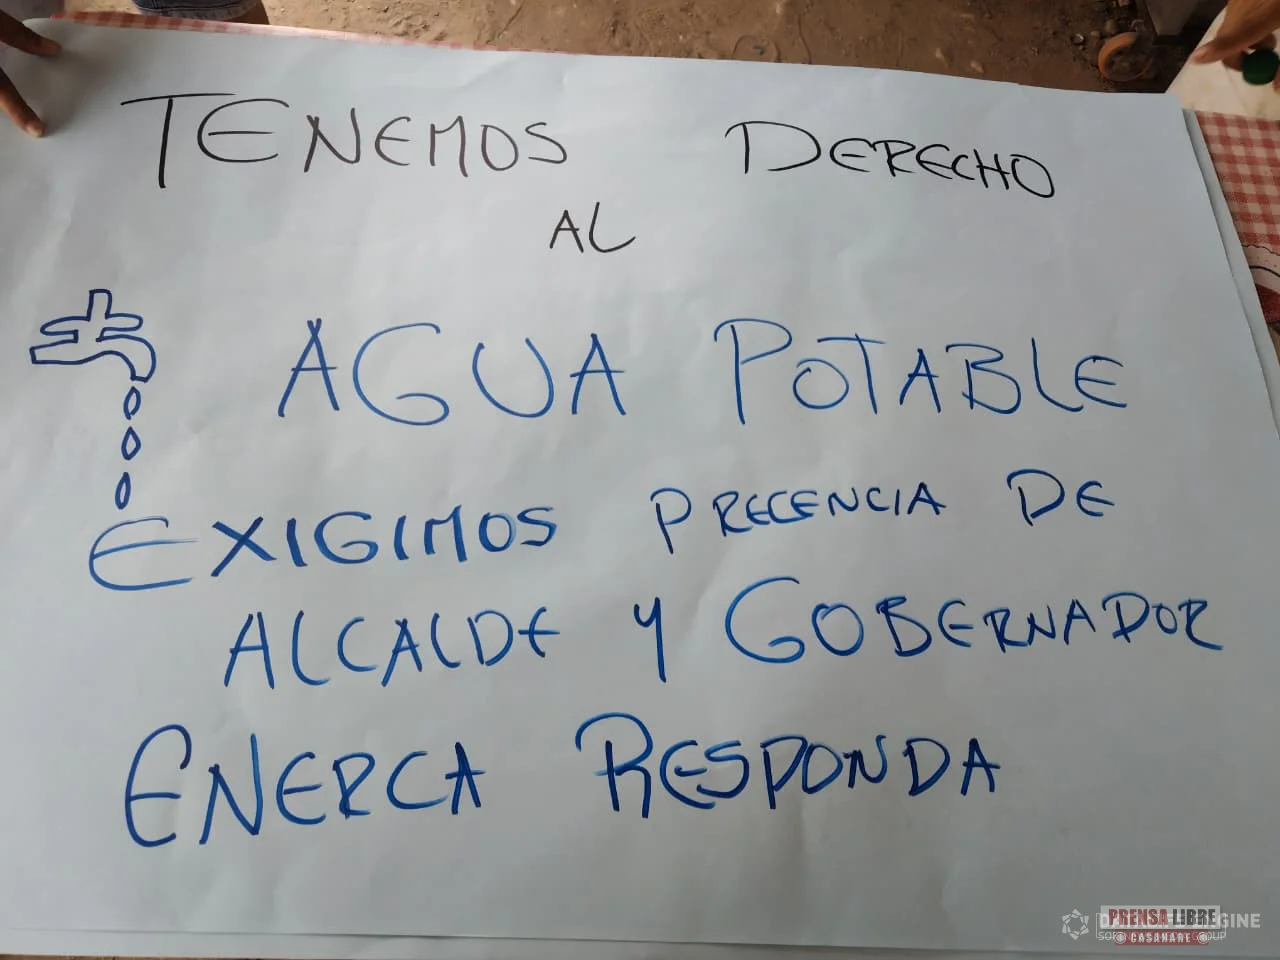 TENEMOS DERECHO
AL
AGUA POTABLE
EXIGIMOS PRECENCIA DE
ALCALDE Y GOBERNADOR
ENERCA RESPONDA
PRENSA LIBRE
CASANARE